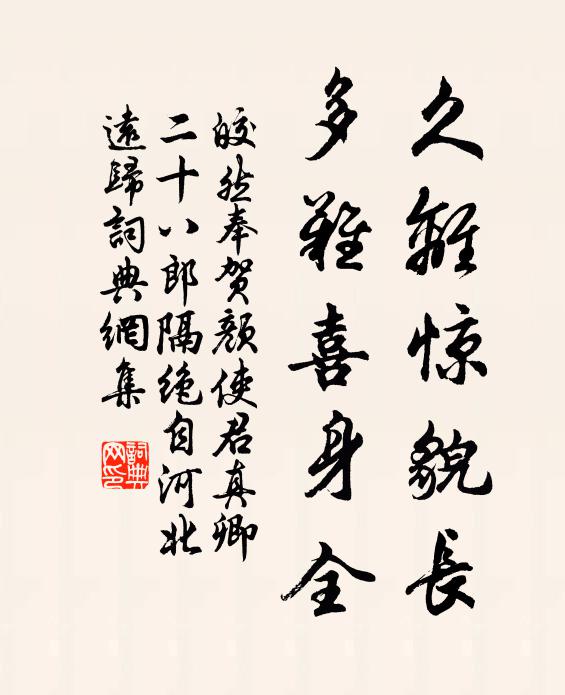 久離惊貌長
多難喜身全
皎然奉贺顏使君真卿
二十八郎隔绝自河北
遠歸詞典網集
詞典
网印